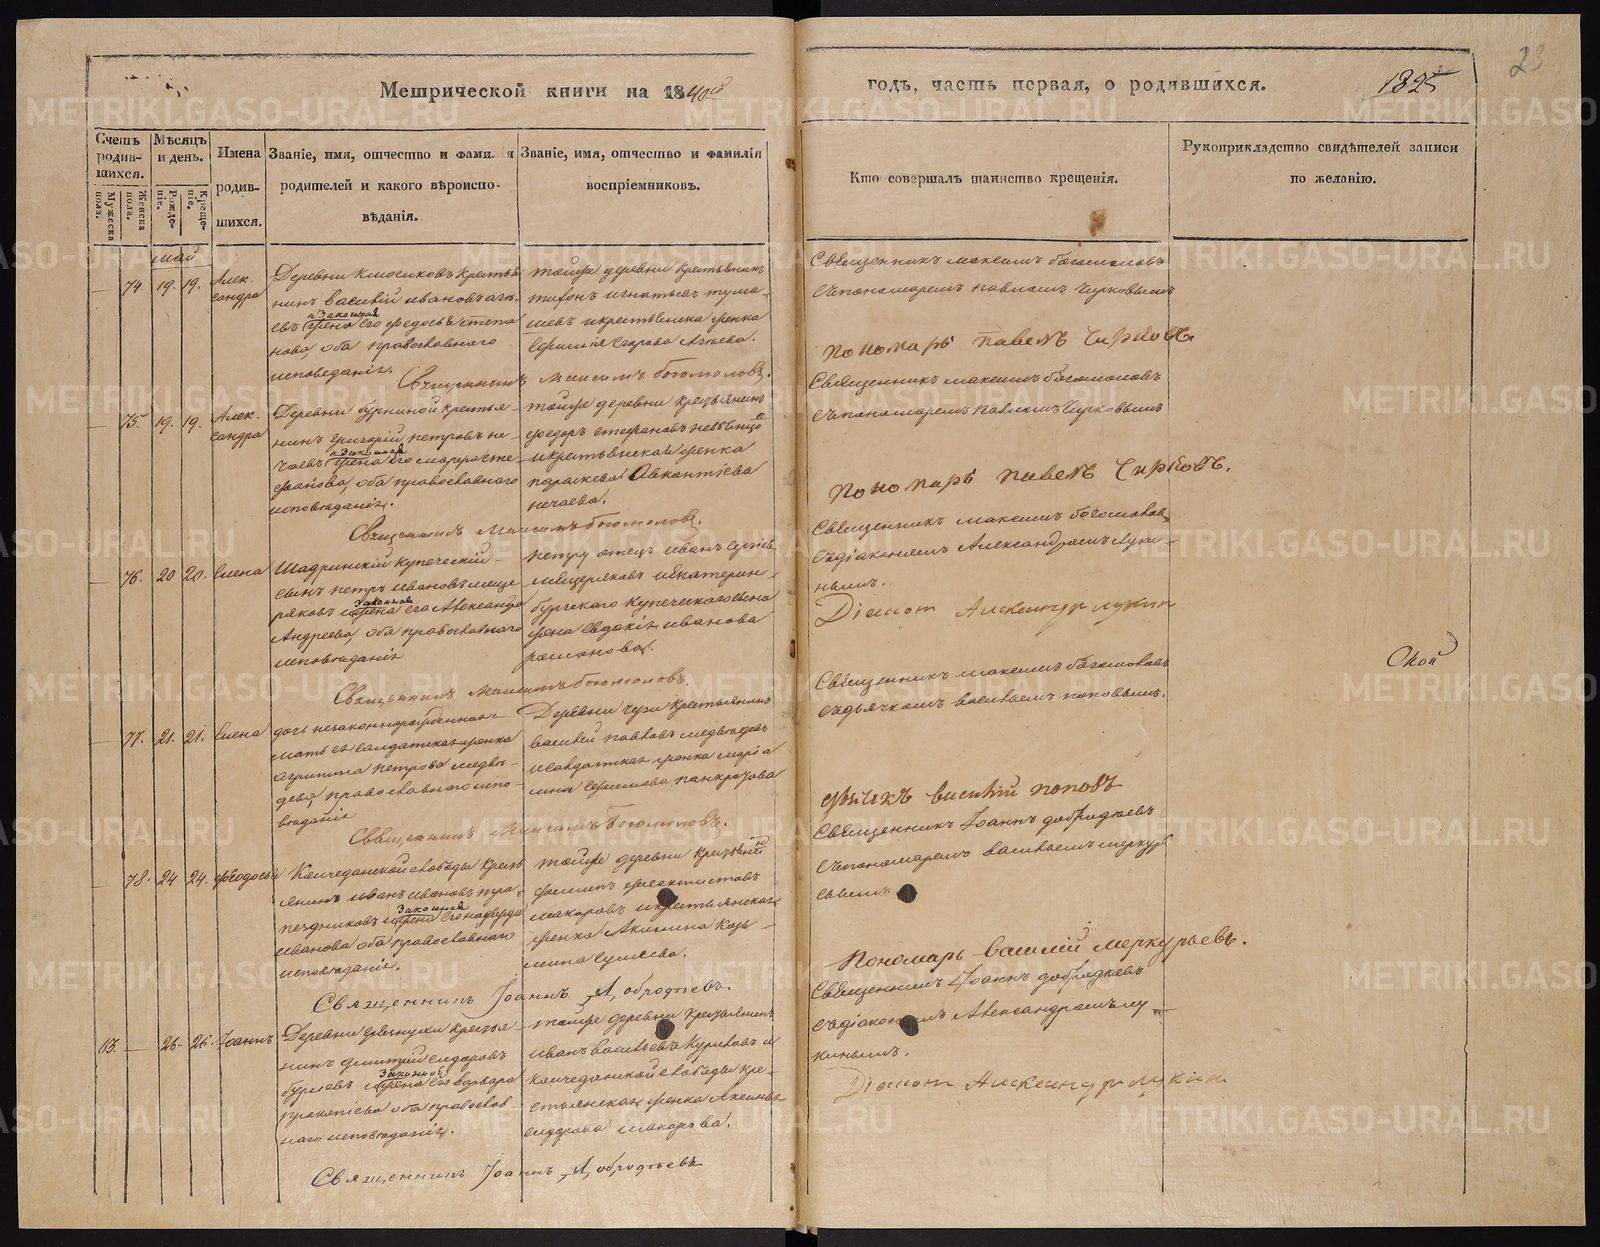 Метрической книги на 1840й
годъ, часть первая, о родившихся.
1825
23
Счетъ родив-шихся.
Мужеска пола.
Женска пола.
Мѣсяцъ и день.
Рожде-ніе.
Креще-ніе.
Имена родив-шихся.
Званіе, имя, отчество и фамилія
родителей и какого вѣроиспо-
вѣданія.
Званіе, имя, отчество и фамилія
воспріемниковъ.
Кто совершалъ таинство крещенія.
Рукоприкладство свидѣтелей записи
по желанію.
май
74 19. 19. Алек-
сандра
Деревни крестья
нинъ василій ивановъ
евъ изаконная жена его федосья степа
нова оба православного
исповеданія.
тойже деревни крестьянинъ
тифонъ игнатьевъ тума-
шевъ икрестьянска женка
Священникъ максимъ богомоловъ
съпономаремъ павломъ Чирковымъ
Пономарь павелъ Чирковъ.
Священникъ Максимъ богомоловъ.
75. 19. 19. Алек-
сандра
Деревни крестья-
нинъ григорій петровъ не-
чаевъ изаконная жена его марфа сте-
фанова, оба православного
исповѣданія.
тойже деревни крестьянинъ
федоръ стефановъ
икрестьянская женка
параскева
нечаева.
Священникъ максимъ богомоловъ
съпономаремъ павломъ Чирковымъ
Пономарь павелъ Чирковъ.
Священникъ Максимъ богомоловъ.
76. 20 20. Елена
Шадринскій купеческій
сынъ петръ ивановъ меще
ряковъ изаконная жена его Александра
Андреева, оба православного
исповѣданія
петру отецъ иванъ
мещеряковъ иекатерин-
бургского купеческого сына
жена Евдокія иванова
романова.
Священникъ максимъ богомоловъ
съдіакономъ Александромъ луки-
нымъ.
Діаконъ Александръ лукинъ
Священникъ Максимъ богомоловъ.
77. 21. 21. Елена
дочь незаконнорожденная
мать ея салдатская женка
агрипина петрова медвѣ-
дева, православного испо-
вѣданія
Деревни крестьянинъ
василій павловъ медвѣдевъ
исалдатская женка
панкратова
Священникъ максимъ богомоловъ
съдьячкомъ василіемъ поповымъ.
дьячекъ василій поповъ
Священникъ Максимъ Богомоловъ.
78. 24 24. Феодосья
Колчеданской слободы крест
янинъ иванъ ивановъ пра-
здниковъ изаконная жена его надежда
иванова оба православного
исповѣданія.
тойже деревни крестьянинъ
филипъ феоктистовъ
макаровъ икрестьянская
женка Акилина Козь-
мина
Священникъ Іоаннъ добродѣевъ
съпономаремъ василіемъ меркурь
евымъ
Пономарь василій меркурьевъ.
Священникъ Іоаннъ Добродѣевъ.
63. 26. 26. Іоаннъ
Деревни крестья-
нинъ димитрій сидоровъ
бурлевъ изаконная жена его варвара
прокопіева оба православ-
наго исповѣданія.
тойже деревни крестьянинъ
иванъ васильевъ Куликовъ и
колчеданской слободы кре-
стьянская женка Аксинья
сидорова макарова.
Священникъ Іоаннъ добродѣевъ
съдіакономъ Александромъ лу-
кинымъ.
Діаконъ Александръ лукинъ
Священникъ Іоаннъ Добродѣевъ
Ской
METRIKI.GASO-URAL.RU